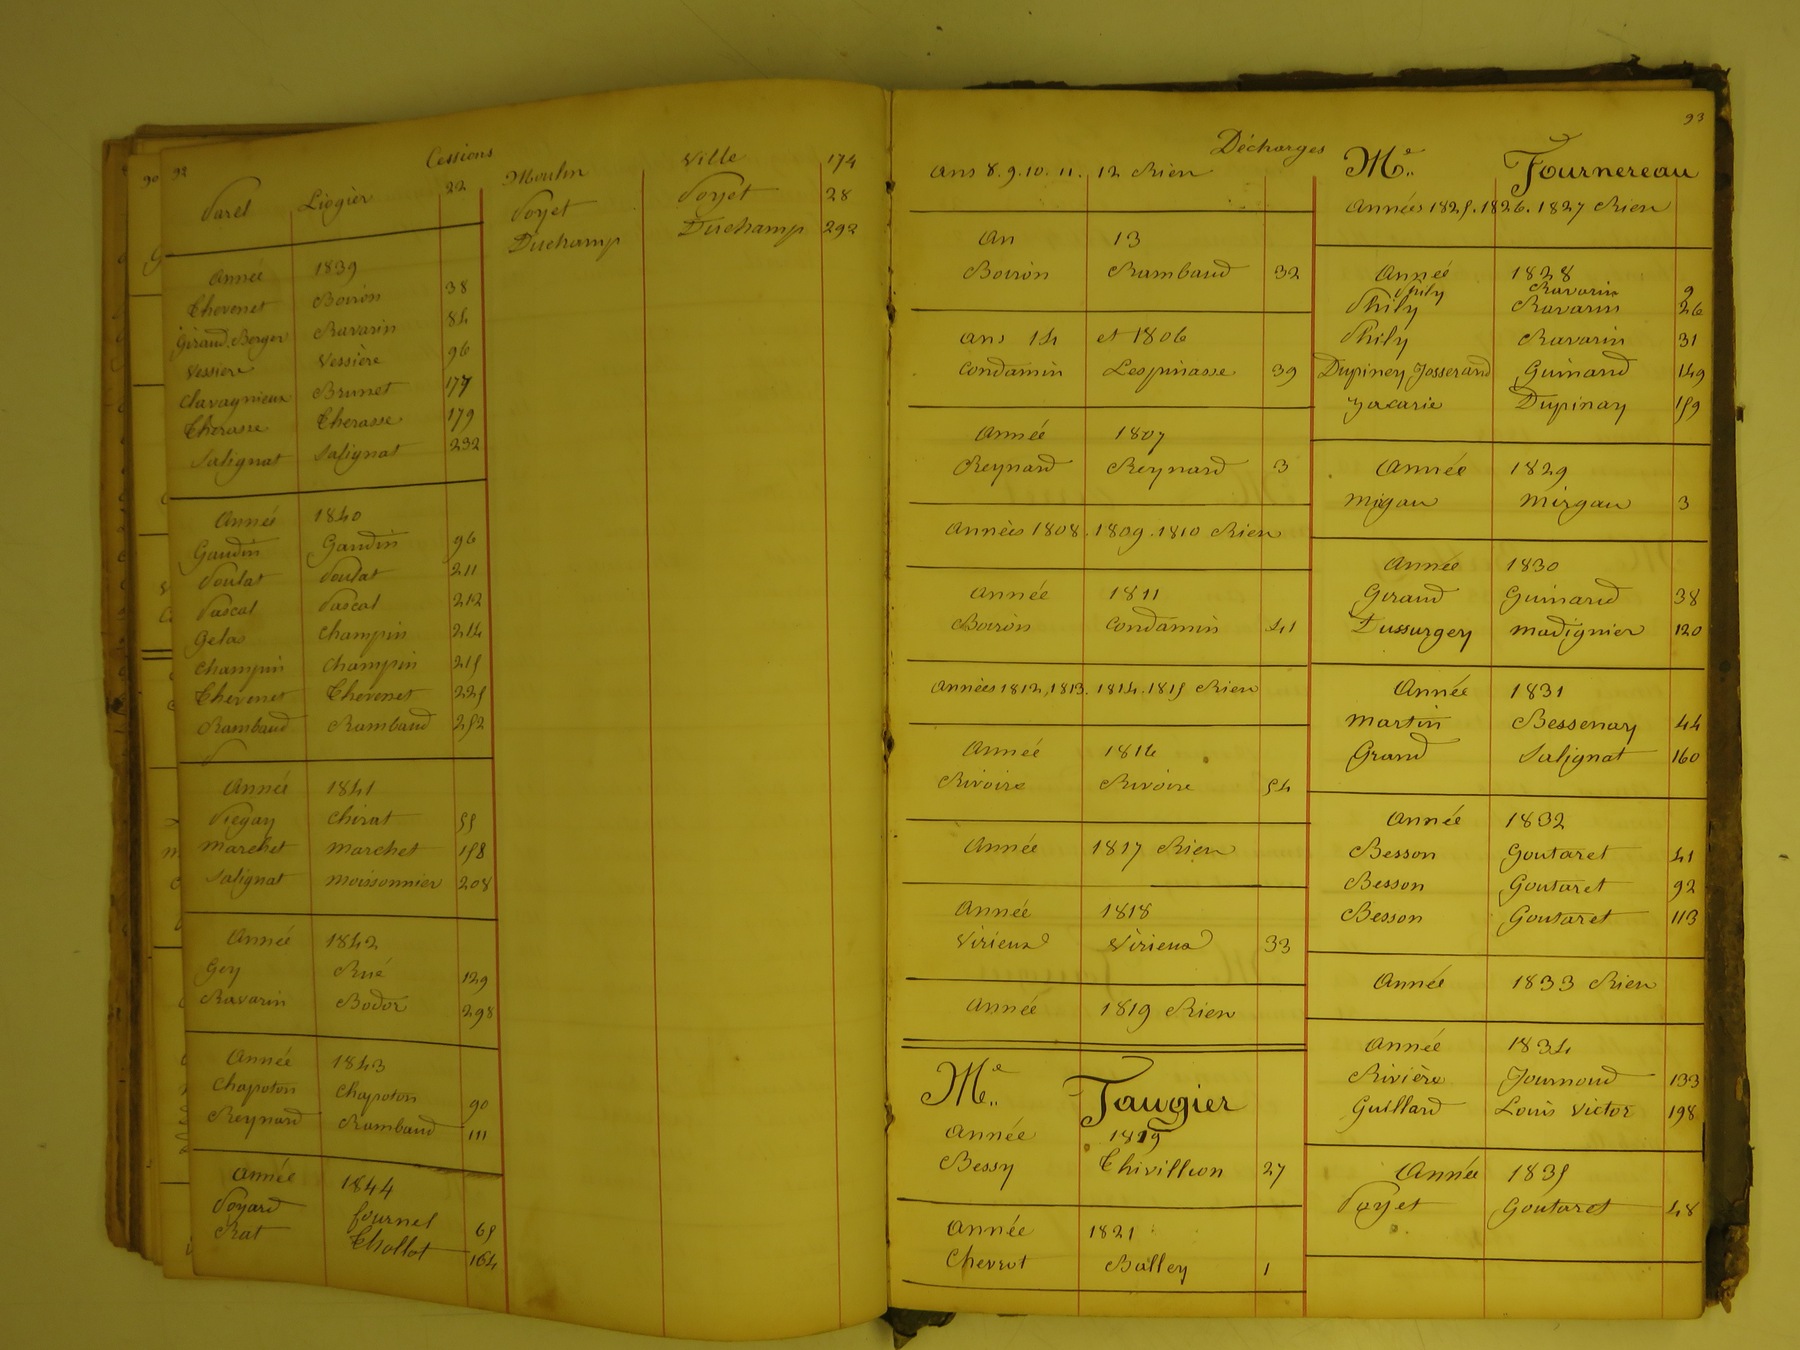 92
Cessions
Parel Liogier 22
Année 1839
Thevenet Boiron 38
Giraud-Berger Ravarin 84
Vessiere Vessière 96
Clavagnieux Brunet 177
Therasse Therasse 179
Salignat Salignat 232
Année 1840
Gaudin Gaudin 96
Poulat Poulat 211
Pascal Pascal 212
Gelas Champin 214
Champin Champin 215
Thevenet Thevenet 225
Rambaud Rambaud 252
Année 1841
Piegay Chirat 55
Marchet Marchet 158
Salignat Moissonnier 208
Année 1842
Gey Rué 129
Ravarin Bodoz 298
Année 1843
Chapoton Chapoton 90
Reynard Rambaud 111
Année 1844
Poyard fournel 65
Rat Thollot 164
Moulin Ville 174
Poyet Poyet 28
Duchamp Duchamp 292
93
Décharges
Ans 8. 9. 10. 11. 12 Rien
An 13
Boiron Rambaud 32
Ans 14 et 1806
Condamin Lespinasse 39
Année 1807
Reynard Reynard 3
Années 1808. 1809. 1810 Rien
Année 1811
Boiron Condamin 41
Années 1812, 1813. 1814. 1815 Rien
Année 1816
Rivoire Rivoire 54
Année 1817 Rien
Année 1818
Virieux Virieux 33
Année 1819 Rien
Me. Faugier
Année 1819
Bessy Thivillion 27
Année 1821
Chevrot Balley 1
Me. Fournereau
Années 1825. 1826. 1827 Rien
Année 1828
Phily Ravarin 9
Phily Ravarin 26
Phily Ravarin 31
Dupiney Josserand Guinand 149
Zacarie Dupinay 159
Année 1829
Migau Mirgau 3
Année 1830
Giraud Guinand 38
Dussurgey Madignier 120
Année 1831
Martin Bessenay 44
Grand Salignat 160
Année 1832
Besson Goutaret 41
Besson Goutaret 92
Besson Goutaret 113
Année 1833 Rien
Année 1834
Rivière Journoud 133
Guillard Louis Victor 198
Année 1835
Poyet Goutaret 48